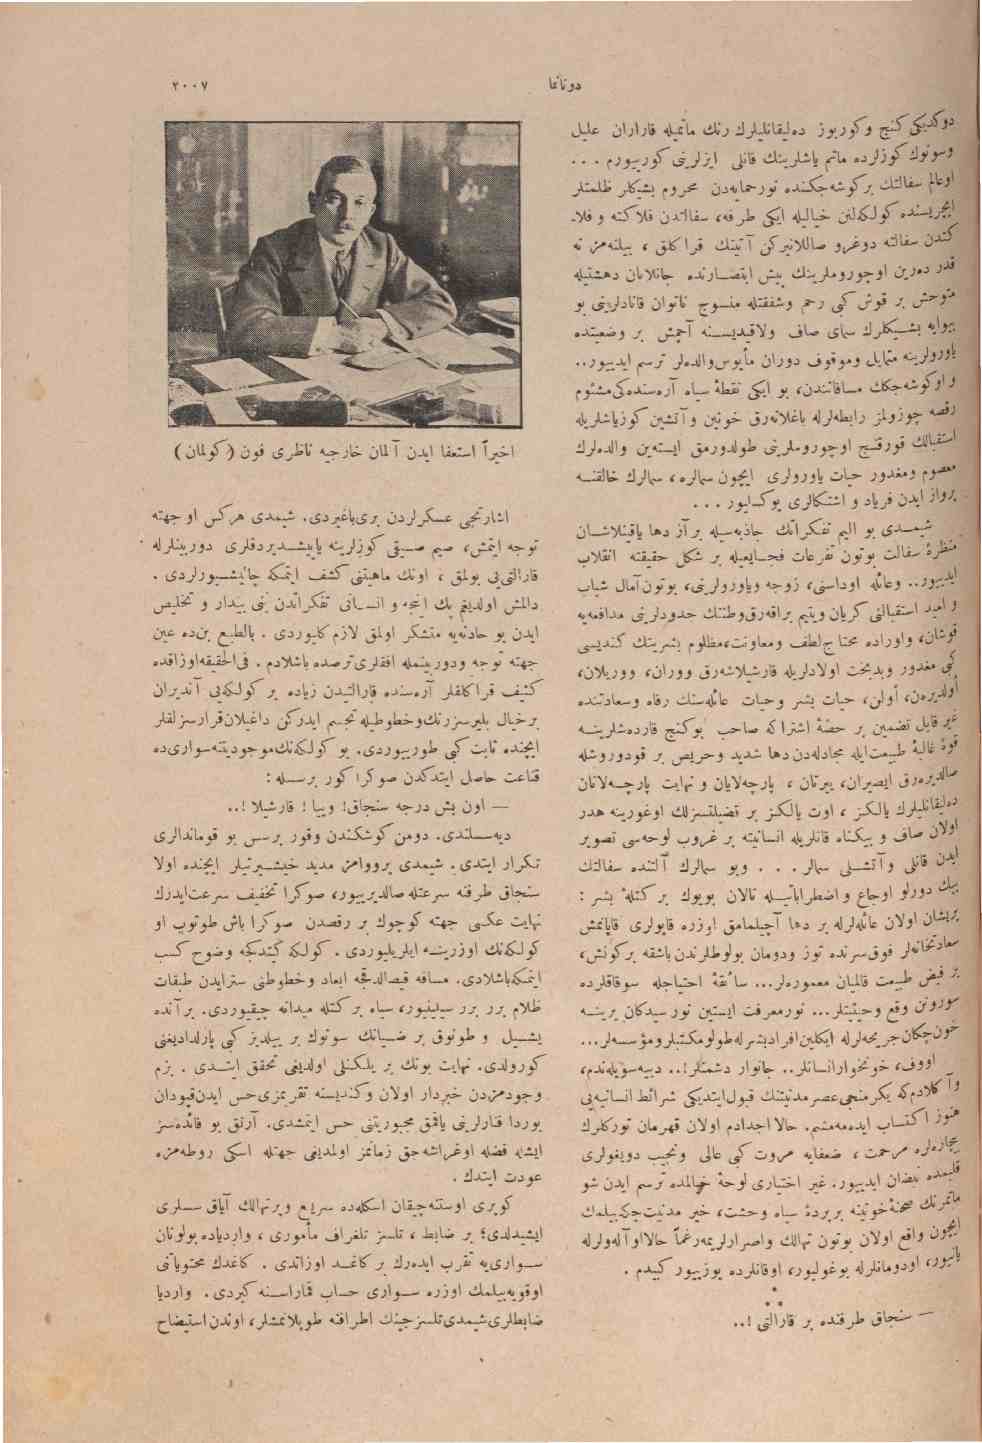 دونانما
٢٠٠٧
دوكديكى كنج وكوربوز ده‌ليقانليلرك رنك ماتميله قاراران عليل
وسونوك كوزلرده ماتم ياشلرينك قانلى ايزلرينى كورييورم . . .
اوعالم سفالتك بر كوشه‌جكنده نورحمايه‌دن محروم بشيكلر ظلمتلر
ايچريسنده كولكه‌لنن خياليله ايكى طرفه، سفالتدن فلاكته و فلا‌
كتدن سفالته دوغرو صاللانيركن آتينك قراكلق ، بيلنه‌مز نه
قدر ده‌رين اوچوروملرينك پيش ابتصارنده جانلانان دهشتيله
متوحش بر قوش كبى رحم وشفقتله منسوج ناتوان قانادلرينى بو
بيوايه بشيكلرك سماى صاف ولاقيديسنه آچمش بر وضعيتده
ياورولرينه متمايل وموقوف دوران مأيوس‌والده‌لر ترسم ايدييور..
و اوكوشه‌جكك مسافاتندن، بو ايكى نقطهٔ سياه آره‌سنده‌كى‌مشئوم
رقصه چوزولمز رابطه‌لرله باغلانه‌رق خونين و آتشين كوزياشلريله
استقبالك قورقنج اوچوروملرينى طولدورمق ايسته‌ين والده‌لرك
معصوم ومغدور حيات ياورولرى ايچون سمالره ، سمالرك خالقنه
پرواز ايدن فرياد و اشتكالرى يوكسليور . . .
شيمدى بو اليم تفكراتك جاذبه‌سيله بر آز دها ياقينلاشان
منظرهٔ سفالت بوتون تفرعات فجايعيله بر شكل حقيقته انقلاب
ايدييور.. وعائله اوداسنى، زوجه وياورولرينى، بوتون‌آمال شباب
و اميد استقبالنى كريان ويتيم براقه‌رق‌وطننك حدودلرينى مدافعه‌يه
قوشان، واوراده محتاج‌لطف ومعاونت،مظلوم بشريتك كنديسى
كبى مغدور وبدبخت اولادلريله قارشيلاشه‌رق ووران، وورولان،
أولديره‌ن، أولن، حيات بشر وحيات عائله‌سنك رفاه وسعادتنده
غير قابل تضمين بر حصهٔ اشتراكه صاحب بوكنج قارده‌شلرينه
قوهٔ غالبهٔ طبيعت‌ايله مجادله‌دن دها شديد وحريص بر قودوروشله
صالديره‌رق ايصيران، ييرتان ، پارچه‌لايان و نهايت پارچه‌لانان
ده‌ليقانليلرك يالكز ، اوت يالكز بر فضيلتسزلك اوغورينه هدر
اولان صاف و بيكناه قانلريله انسانيته بر غروب لوحه‌سى تصوير
ايدن قانلى وآتشلى سمالر . . . وبو سمالرك آلتنده سفالتك
بيك دورلو اوجاع و اضطراباتيله نالان بويوك بر كتلهٔ بشر :
پريشان اولان عائله‌لرله بر دها آچيلمامق اوزره قاپولرى قاپانمش
سعادتخانه‌لر فوق‌سرنده توز ودومان بولوطلرندن باشقه بر كونش،
بر فيض طبيعت قالميان معموره‌لر... سائقهٔ احتياجله سوقاقلرده
سورونن وقع وحيثيتلر... نورمعرفت ايستين نورسيدكان يرينه
خون‌چكان‌جريحه‌لرله ايكلين‌افرادبشرله‌طولومكتبلرومؤسسه‌لر...
اووف، خونخوارانسانلر.. جانوار دشمنلر!.. دييه‌سويله‌ندم،
و آكلادم‌كه يكرمنجى‌عصر مدنيتنك قبول‌ايتديكى شرائط انسانيه‌يى
هنوز اكتساب ايده‌مه‌مشم. حالا اجدادم اولان قهرمان توركلرك
بيچاره‌لره مرحمت ، ضعفايه مروت كبى عالى ونجيب دويغولرى
قلبمده نبضان ايدييور. غير اختيارى لوحهٔ خيالمده ترسم ايدن شو
ماتمرنك صحنهٔ‌خونينه بر پردهٔ سياه وحشت، خير مدنيت‌چكه‌بيلمك
ايچون واقع اولان بوتون تهالك واصرارلريمه‌رغماً حالااو آله‌ولرله
يانيور، اودومانلرله بوغوليور، اوقانلرده يوزييور كبيدم .
— سنجاق طرفنده بر قارالتى !..
اخيراً استعفا ايدن آلمان خارجيه ناظرى فون ( كولمان )
اشارتجى عسكرلردن برى‌باغيردى. شيمدى هركس او جهته
توجه ايتمش، صيم صيقى كوزلرينه ياپيشديردقلرى دوربينلرله
قارالتى‌يى بولمق ، اونك ماهيتنى كشف ايتمكه چاليشيورلردى .
دالمش اولديغم پك انجه و انسانى تفكراتدن بنى بيدار و تخليص
ايدن بو حادثه‌يه متشكر اولمق لازم كلييوردى . بالطبع بن‌ده عين
جهته توجه ودوربينمله افقلرى‌ترصده باشلادم . فى‌الحقيقه‌اوزاقده
كثيف قراكلقلر آره‌سنده قارالتيدن زياده بر كولكه‌يى آنديران
برخيال بليرسزرنك‌وخطوطيله تجسم ايدركن داغيلان‌قرارسزلقلر
ايچنده ثابت كبى طورييوردى. بو كولكه‌نك‌موجوديتنه‌سوارى‌ده
قناعت حاصل ايتدكدن صوكرا كور برسله :
— اون بش درجه سنجاق! ويبا ! قارشيلا !..
ديه‌سلندى. دومن كوشكندن وقور برسس بو قوماندالرى
تكرار ايتدى. شيمدى پرووامز مديد خيشيرتيلر ايچنده اولا
سنجاق طرفنه سرعتله صالديرييور، صوكرا تخفيف سرعت‌ايدرك
نهايت عكسى جهته كوچوك بر رقصدن صوكرا باش طوتوب او
كولكه‌نك اوزرينه ايلريلييوردى . كولكه كيتدكجه وضوح كسب
ايتمكه‌باشلادى. مسافه قيصالدقجه ابعاد وخطوطنى سترايدن طبقات
ظلام برر برر سيلينيور، سياه بر كتله ميدانه چيقيوردى. بر آنده
يشيل و طونوق بر ضيانك سونوك بر ييلديز كبى پارلداديغنى
كورولدى. نهايت بونك بر يلكنلى اولديغى تحقق ايتدى . بزم
وجودمزدن خبردار اولان وكنديسنه تقربمزى‌حس ايدن‌قپودان
بوردا فنارلرينى ياقمق مجبوريتنى حس ايتمشدى. آرتق بو فائده‌سز
ايشله فضله اوغراشه‌جق زمانمز اولمديغى جهتله اسكى روطه‌مزه
عودت ايتدك .
كوپرى اوستنه‌چيقان اسكله‌ده سريع وپرتهالك آياق سسلرى
ايشيدلدى؛ بر ضابط ، تلسز تلغراف مأمورى ، وارديا‌ده بولونان
سوارى‌يه تقرب ايده‌رك بر كاغد اوزاتدى . كاغدك محتوياتنى
اوقويه‌بيلمك اوزره سوارى حساب قماراسنه كيردى. وارديا
ضابطلرى‌شيمدى‌تلسزجينك اطرافنه طوپلانمشلر، اوندن‌استيضاح